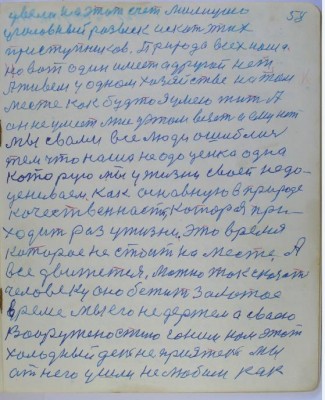 58
увели на этот счет милицию
уголовный розыск искат этих
преступников. Природа всех наша.
Но вот один имеет а другой нет
А живем у одном хозяйстве на том
месте как будто я умею жит А
он не умеет мне дають везет а ему нет
мы свами все люди ошиблис
тем что наша недооценка одна
которую мы у жизни своей недо-
цениваем, как основную в природе
качественност, которая при-
ходит раз у жизни. Это время
которое не стоит на месте. А
все движется, можно так сказат
человеку оно бежит Золотое
время мы его не держем а своею
вооруженостию гоним нам этот
холодный ден не приятен мы
от него ушли не любим как